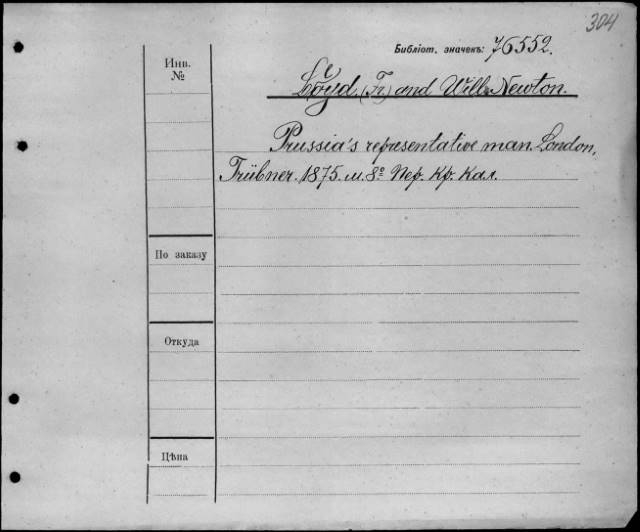 304
Библіот. значекъ: 76552.
Инв.
№
Lloyd (Fr.) and Will. Newton.
Prussia's representative man. London,
Trübner. 1875. м. 8º Пер. Кр. Кал.
По заказу
Откуда
Цѣна